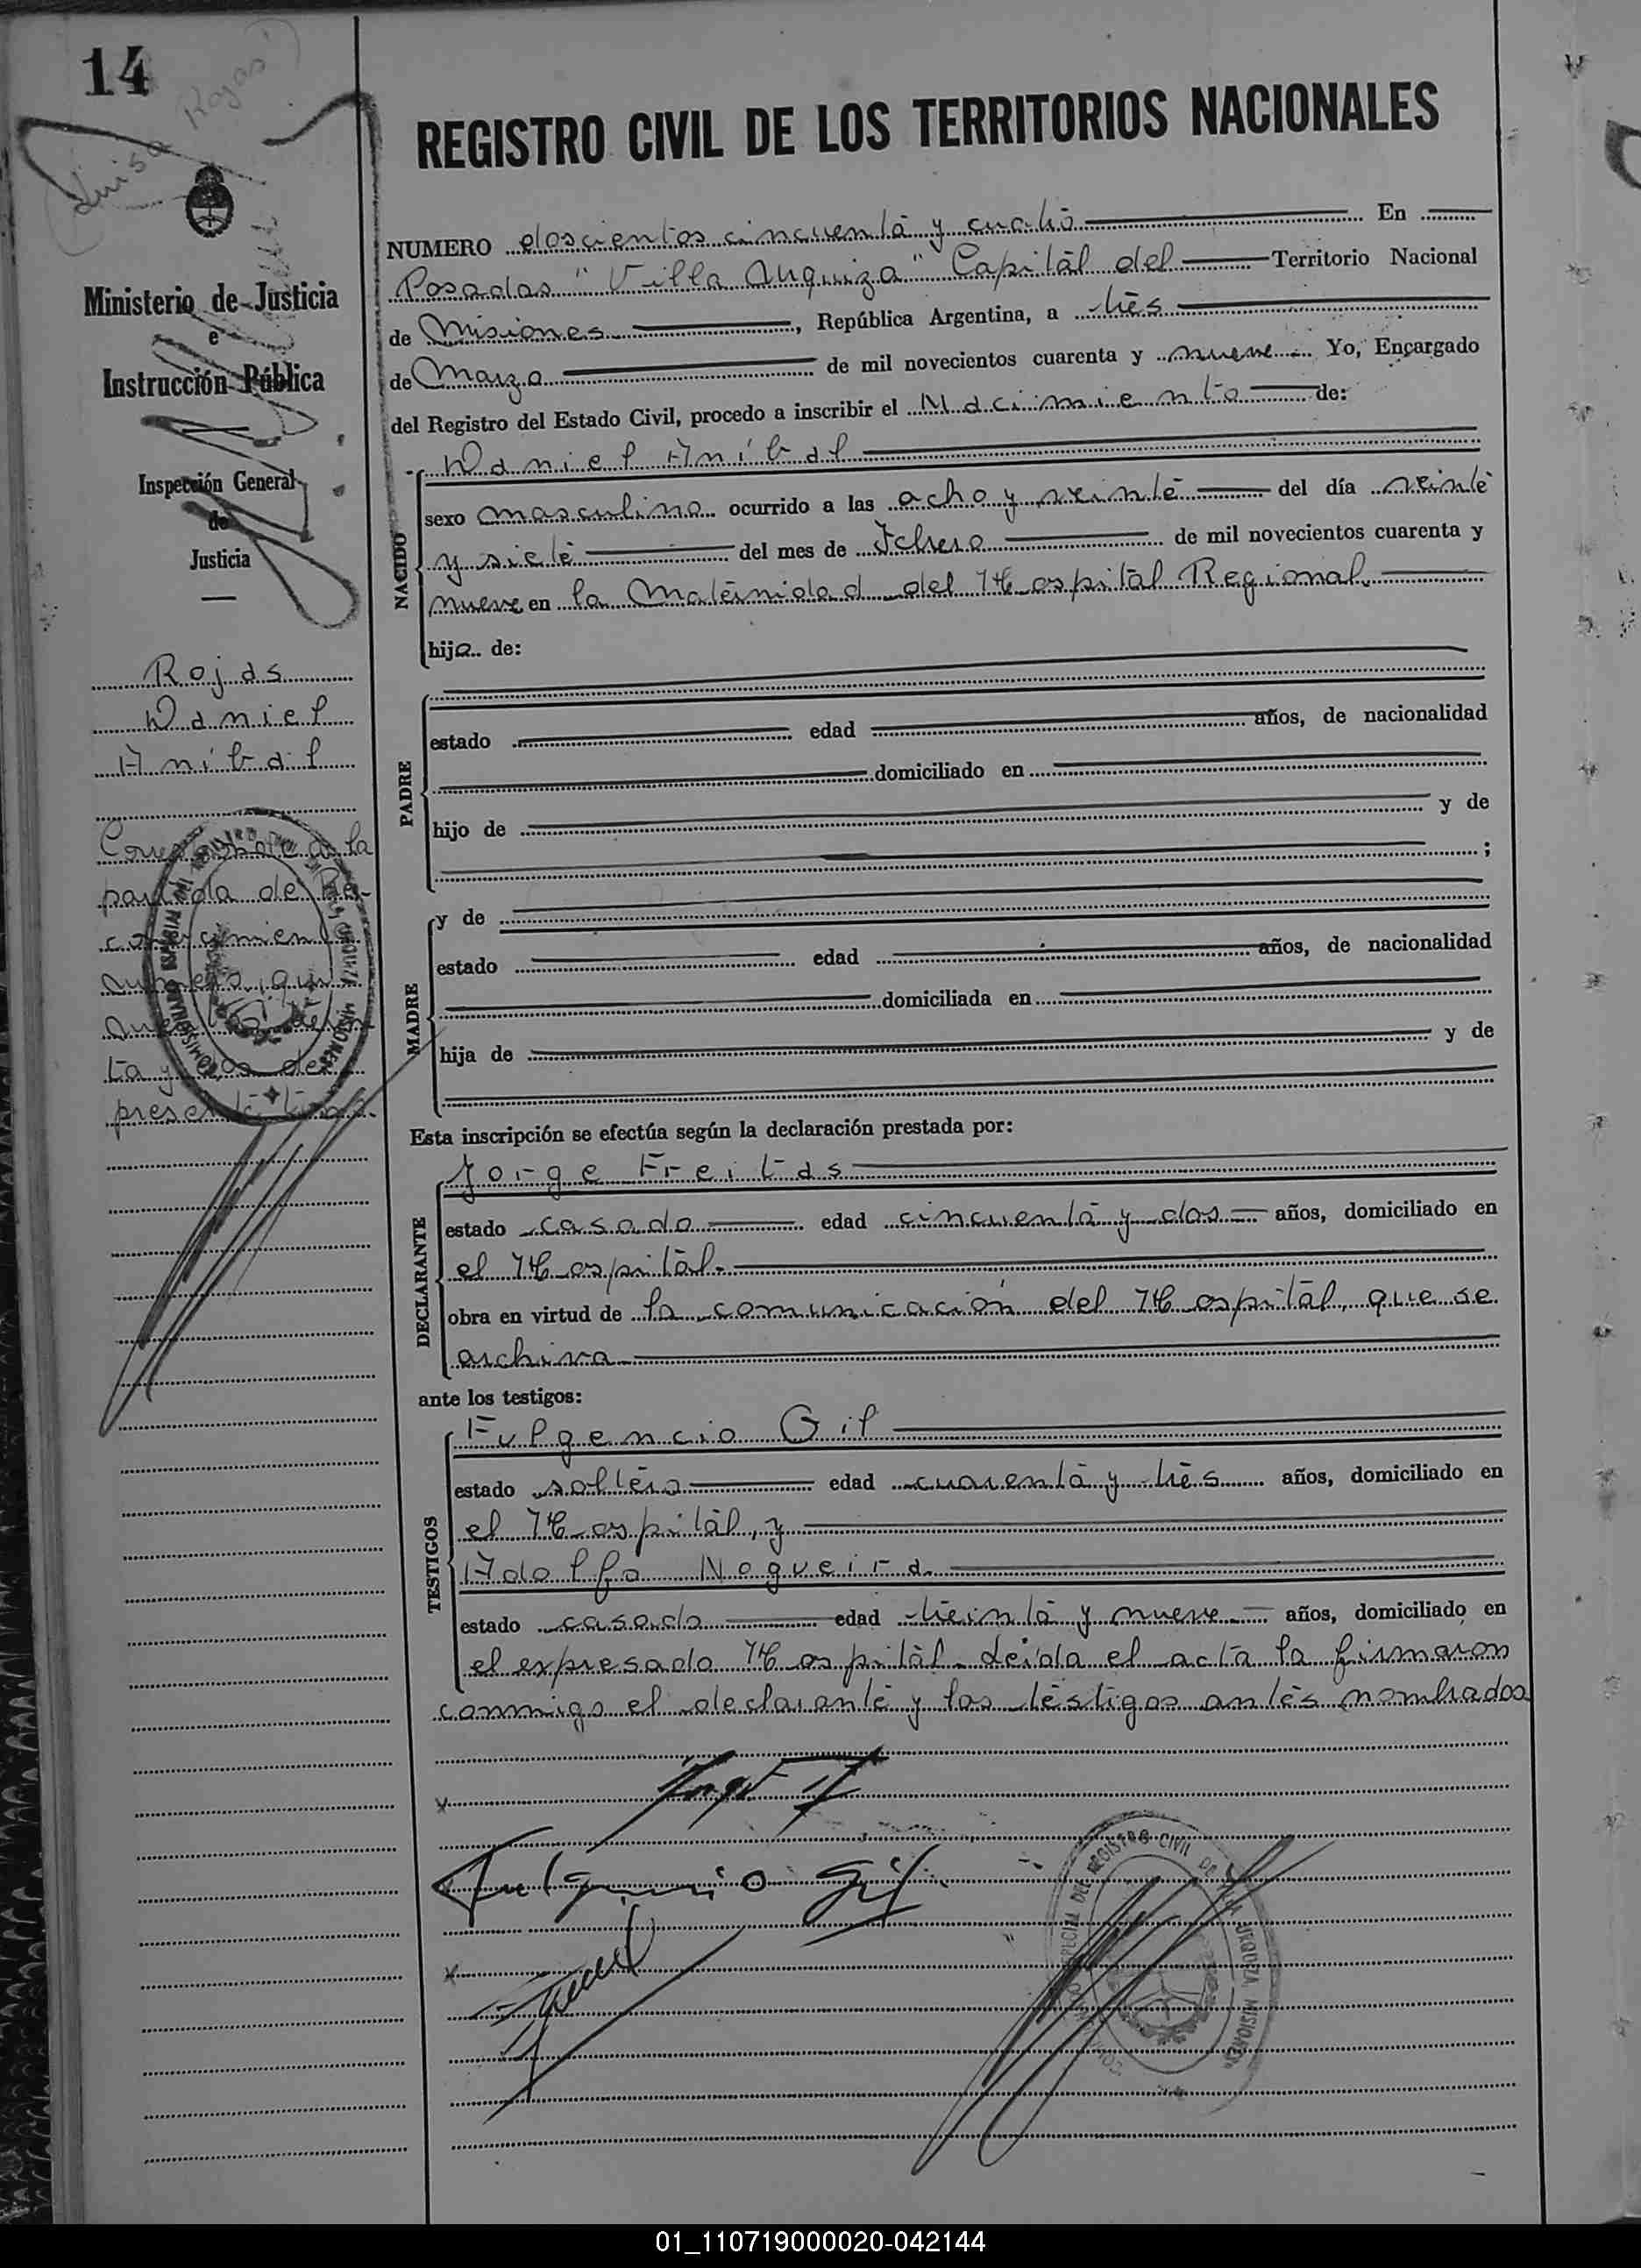 14
(Luisa Rojas)
REGISTRO CIVIL DE LOS TERRITORIOS NACIONALES
Ministerio de Justicia
e
Instrucción Pública
Inspección General
de
Justicia
Rojas
Daniel
Anibal
Corresponde a la
partida de Re-
conocimiento
número, qui
ta y de
presente
NUMERO doscientos cincuenta y cuatro En
Posadas "Villa Urquiza" Capital del Territorio Nacional
de Misiones, República Argentina, a tres
de Marzo de mil novecientos cuarenta y nueve Yo, Encargado
del Registro del Estado Civil, procedo a inscribir el Nacimiento de:
NACIDO
Daniel Aníbal
sexo masculino ocurrido a las ocho y veinte del día veinte
y siete del mes de Febrero de mil novecientos cuarenta y
nueve en la Maternidad del Hospital Regional.
hijo de:
PADRE
estado edad años, de nacionalidad
domiciliado en
hijo de y de
;
MADRE
y de
estado edad años, de nacionalidad
domiciliada en
hija de y de
Esta inscripción se efectúa según la declaración prestada por:
DECLARANTE
Jorge Freitas
estado casado edad cincuenta y dos años, domiciliado en
el Hospital.
obra en virtud de la comunicación del Hospital, que se
archiva
ante los testigos:
TESTIGOS
Fulgencio Gil
estado soltero edad cuarenta y tres años, domiciliado en
el Hospital, y
Adolfo Nogueira.
estado casado edad treinta y nueve años, domiciliado en
el expresado Hospital. Leída el acta la firmaron
conmigo el declarante y los testigos antes nombrados
Jorge F
Fulgencio Gil
REGISTRO CIVIL DE VILLA URQUIZA MISIONES
01_110719000020-042144